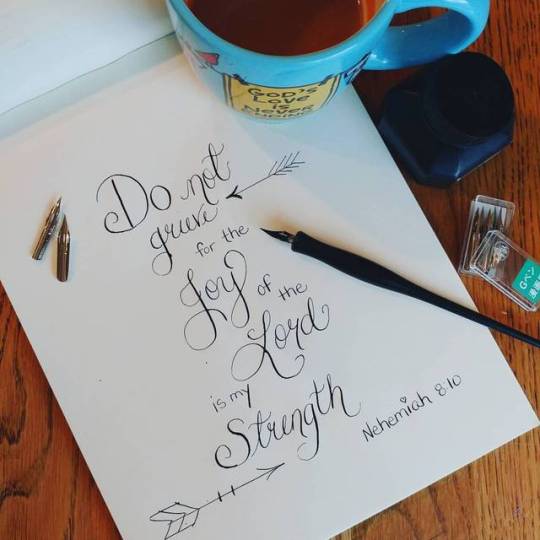 GOD'S
LOVE
IS
NEVER
ENDING
Do not
grieve
for the
Joy of the
Lord
is my
Strength
Nehemiah 8:10
Gペン